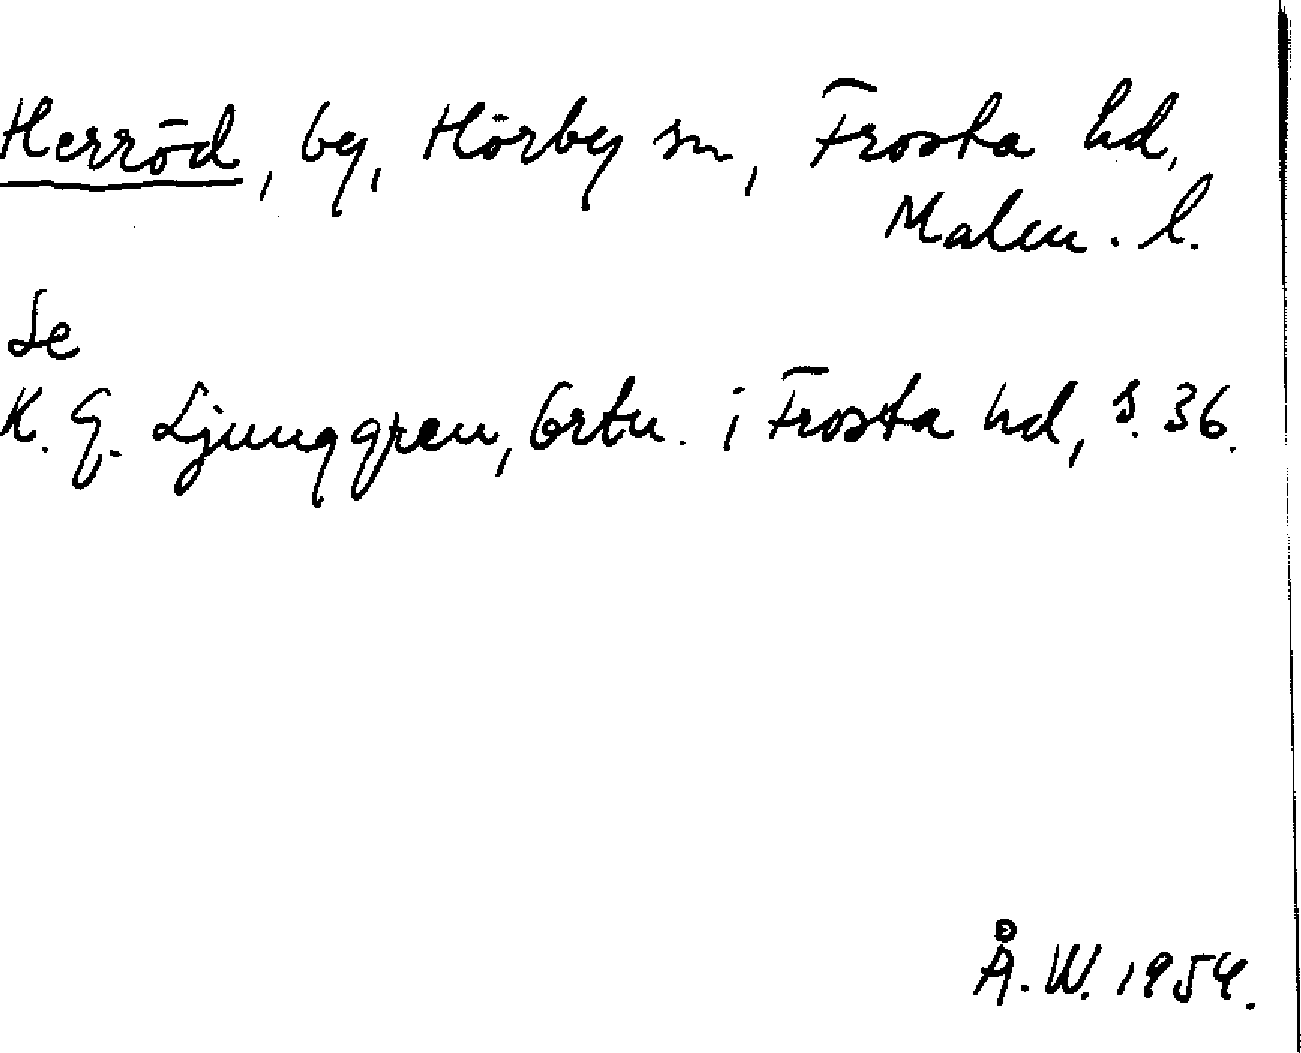 Herröd, by, Hörby sn, Frosta hd,
Malm. l.
Se
K. G. Ljunggren, Ortn. i Frosta hd, s. 36.
Å. W. 1954.